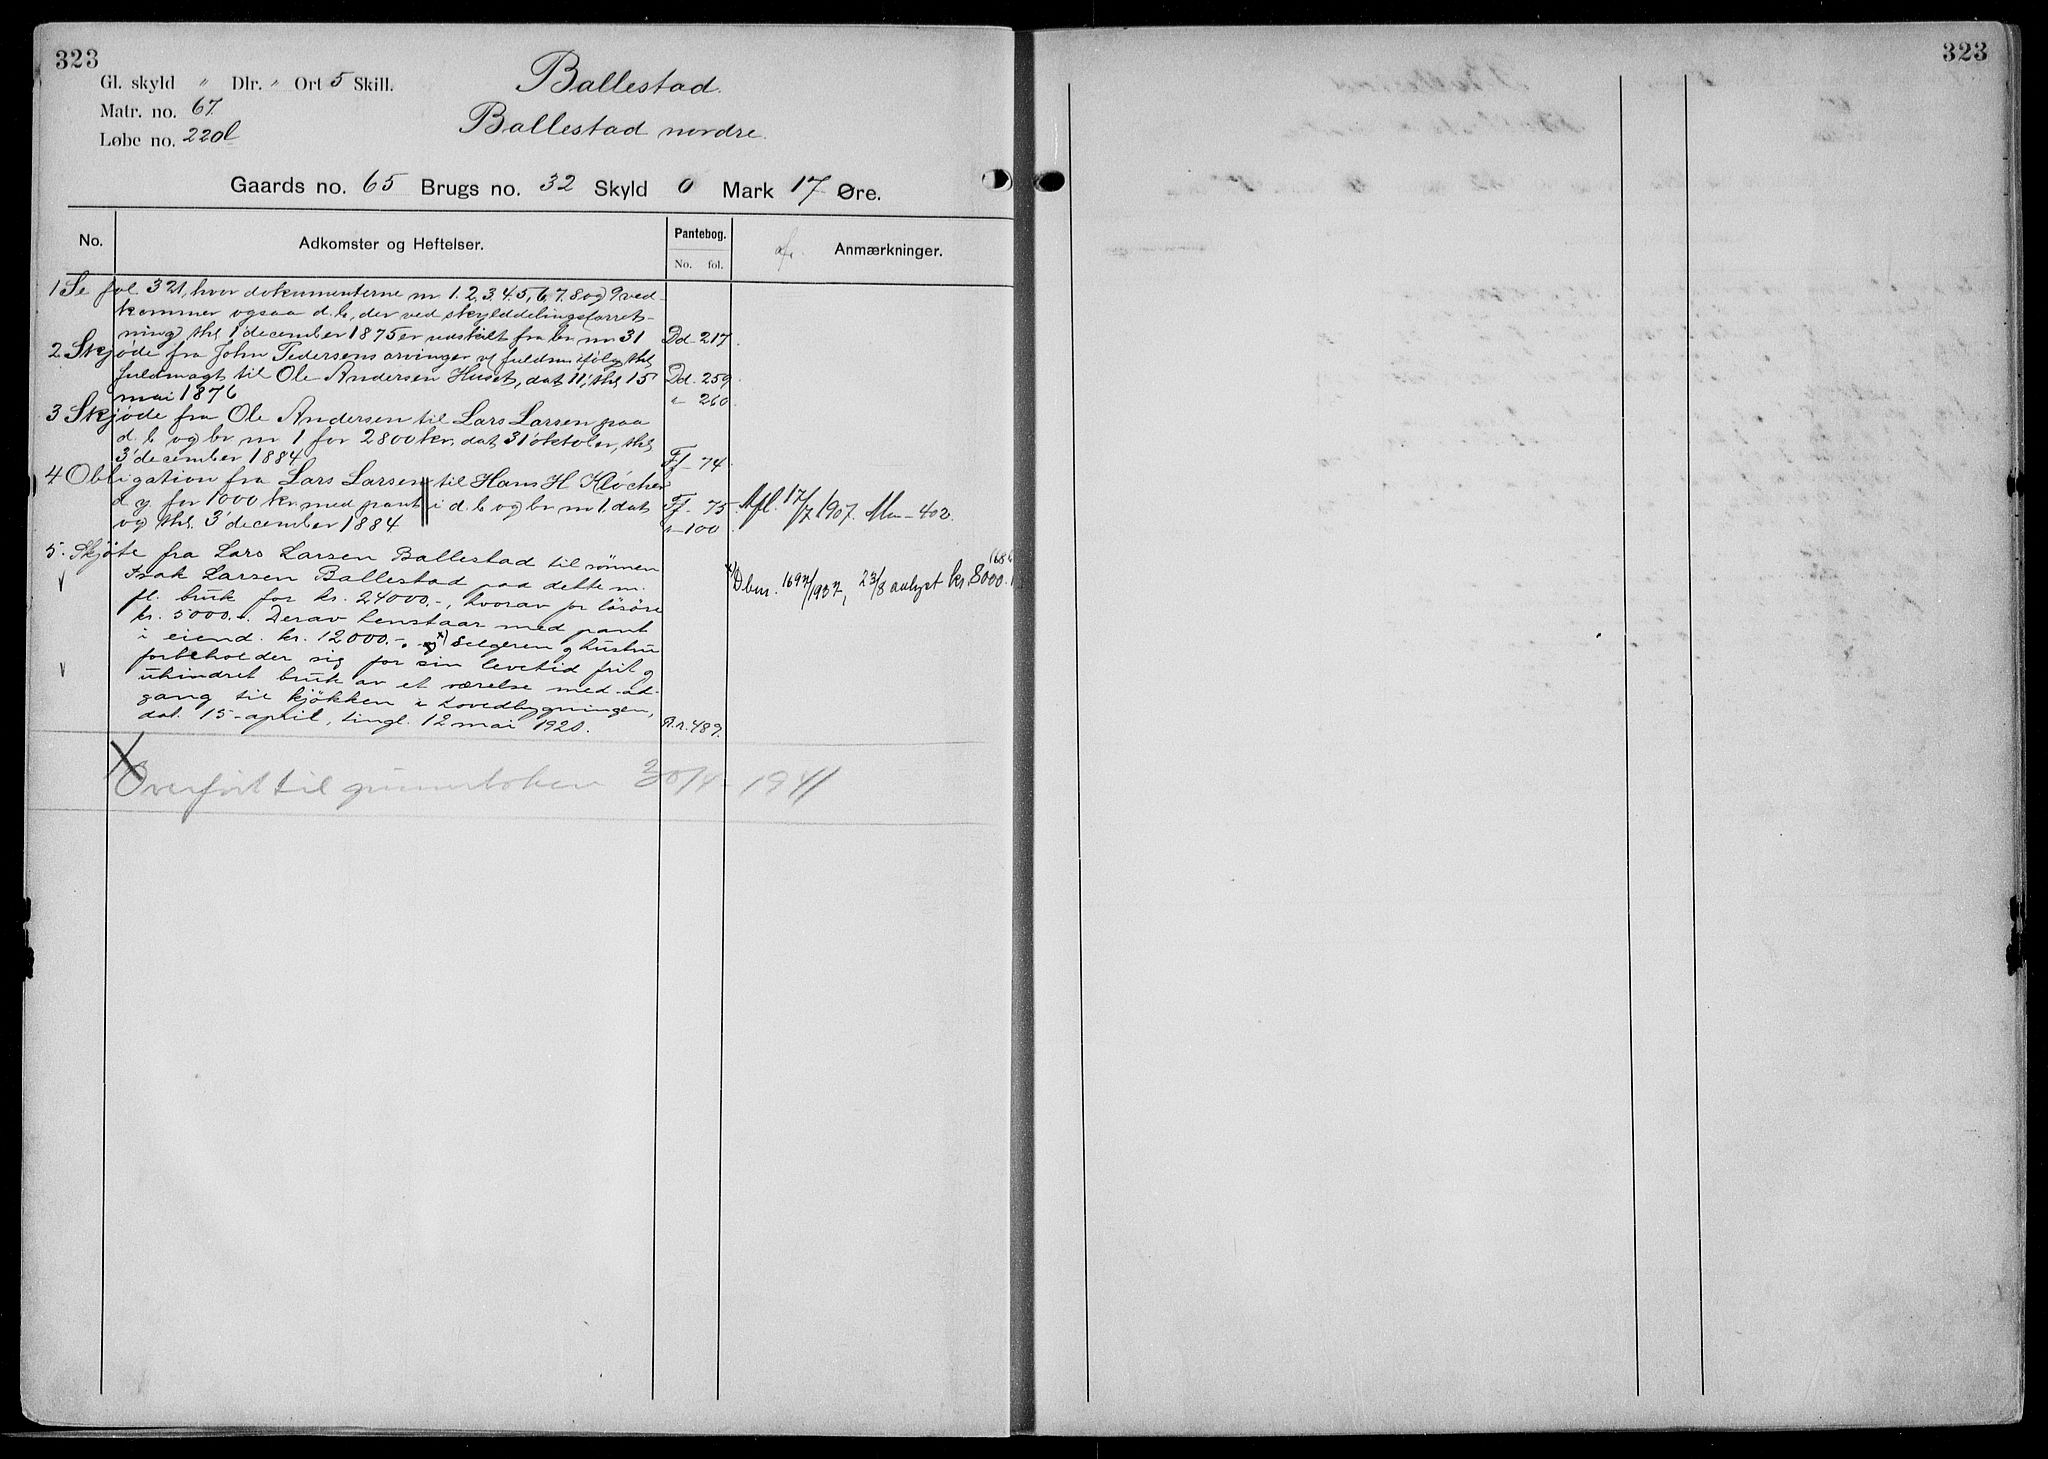 323
Gl. skyld " Dlr. " Ort 5 Skill.
Matr. no. 67.
Løbe no. 220l
Ballestad.
Ballestad nordre.
Gaards no. 65 Brugs no. 32 Skyld 0 Mark 17 Øre.
No. Adkomster og Heftelser. Pantebog. No. fol. Anmærkninger.
1 Se fol 321, hvor dokumenterne nr 1. 2, 3. 4. 5, 6, 7. 8 og 9 ved-
kommer ogsaa d. b, der ved skylddelingsforret-
ning thl 1' december 1875 er udskilt fra br. nr 31 Dd. 217.
2 Skjøde fra John Pedersens arvinger fuldm. ifølg thl
fuldmagt til Ole Andersen Huset, dat 11', thl 15' Dd. 259
mai 1876 " 260.
3 Skjøde fra Ole Andersen til Lars Larsen paa
d. b og br nr 1 for 2800 kr, dat 31' oktober, thl
3' december 1884 Ff. 74.
4 Obligation fra Lars Larsen til Hans H. Kløcher
for 1000 kr med pant i d. b og br nr 1 dat Ff. 75. Afl. 17/7 1907. 402.
og thl. 3' december 1884 " 100
5. Skjøte fra Lars Larsen Ballestad til sønnen
Isak Larsen Ballestad paa dette m.
fl. bruk for kr. 24000.-, hvorav for løsøre
kr. 5000.-. Derav henstaar med pant
i eiend. kr. 12000.-. x) Selgeren og hustru
forbeholder sig for sin levetid frit og
uhindret bruk av et værelse med ad-
gang til kjøkken i hovedbygningen,
dat. 15-april, tingl. 12 mai 1920. 489.
x) 1697/1937, 23/8 avlyst kr. 8000.
Overført til grunnboken 30/4-1941
323